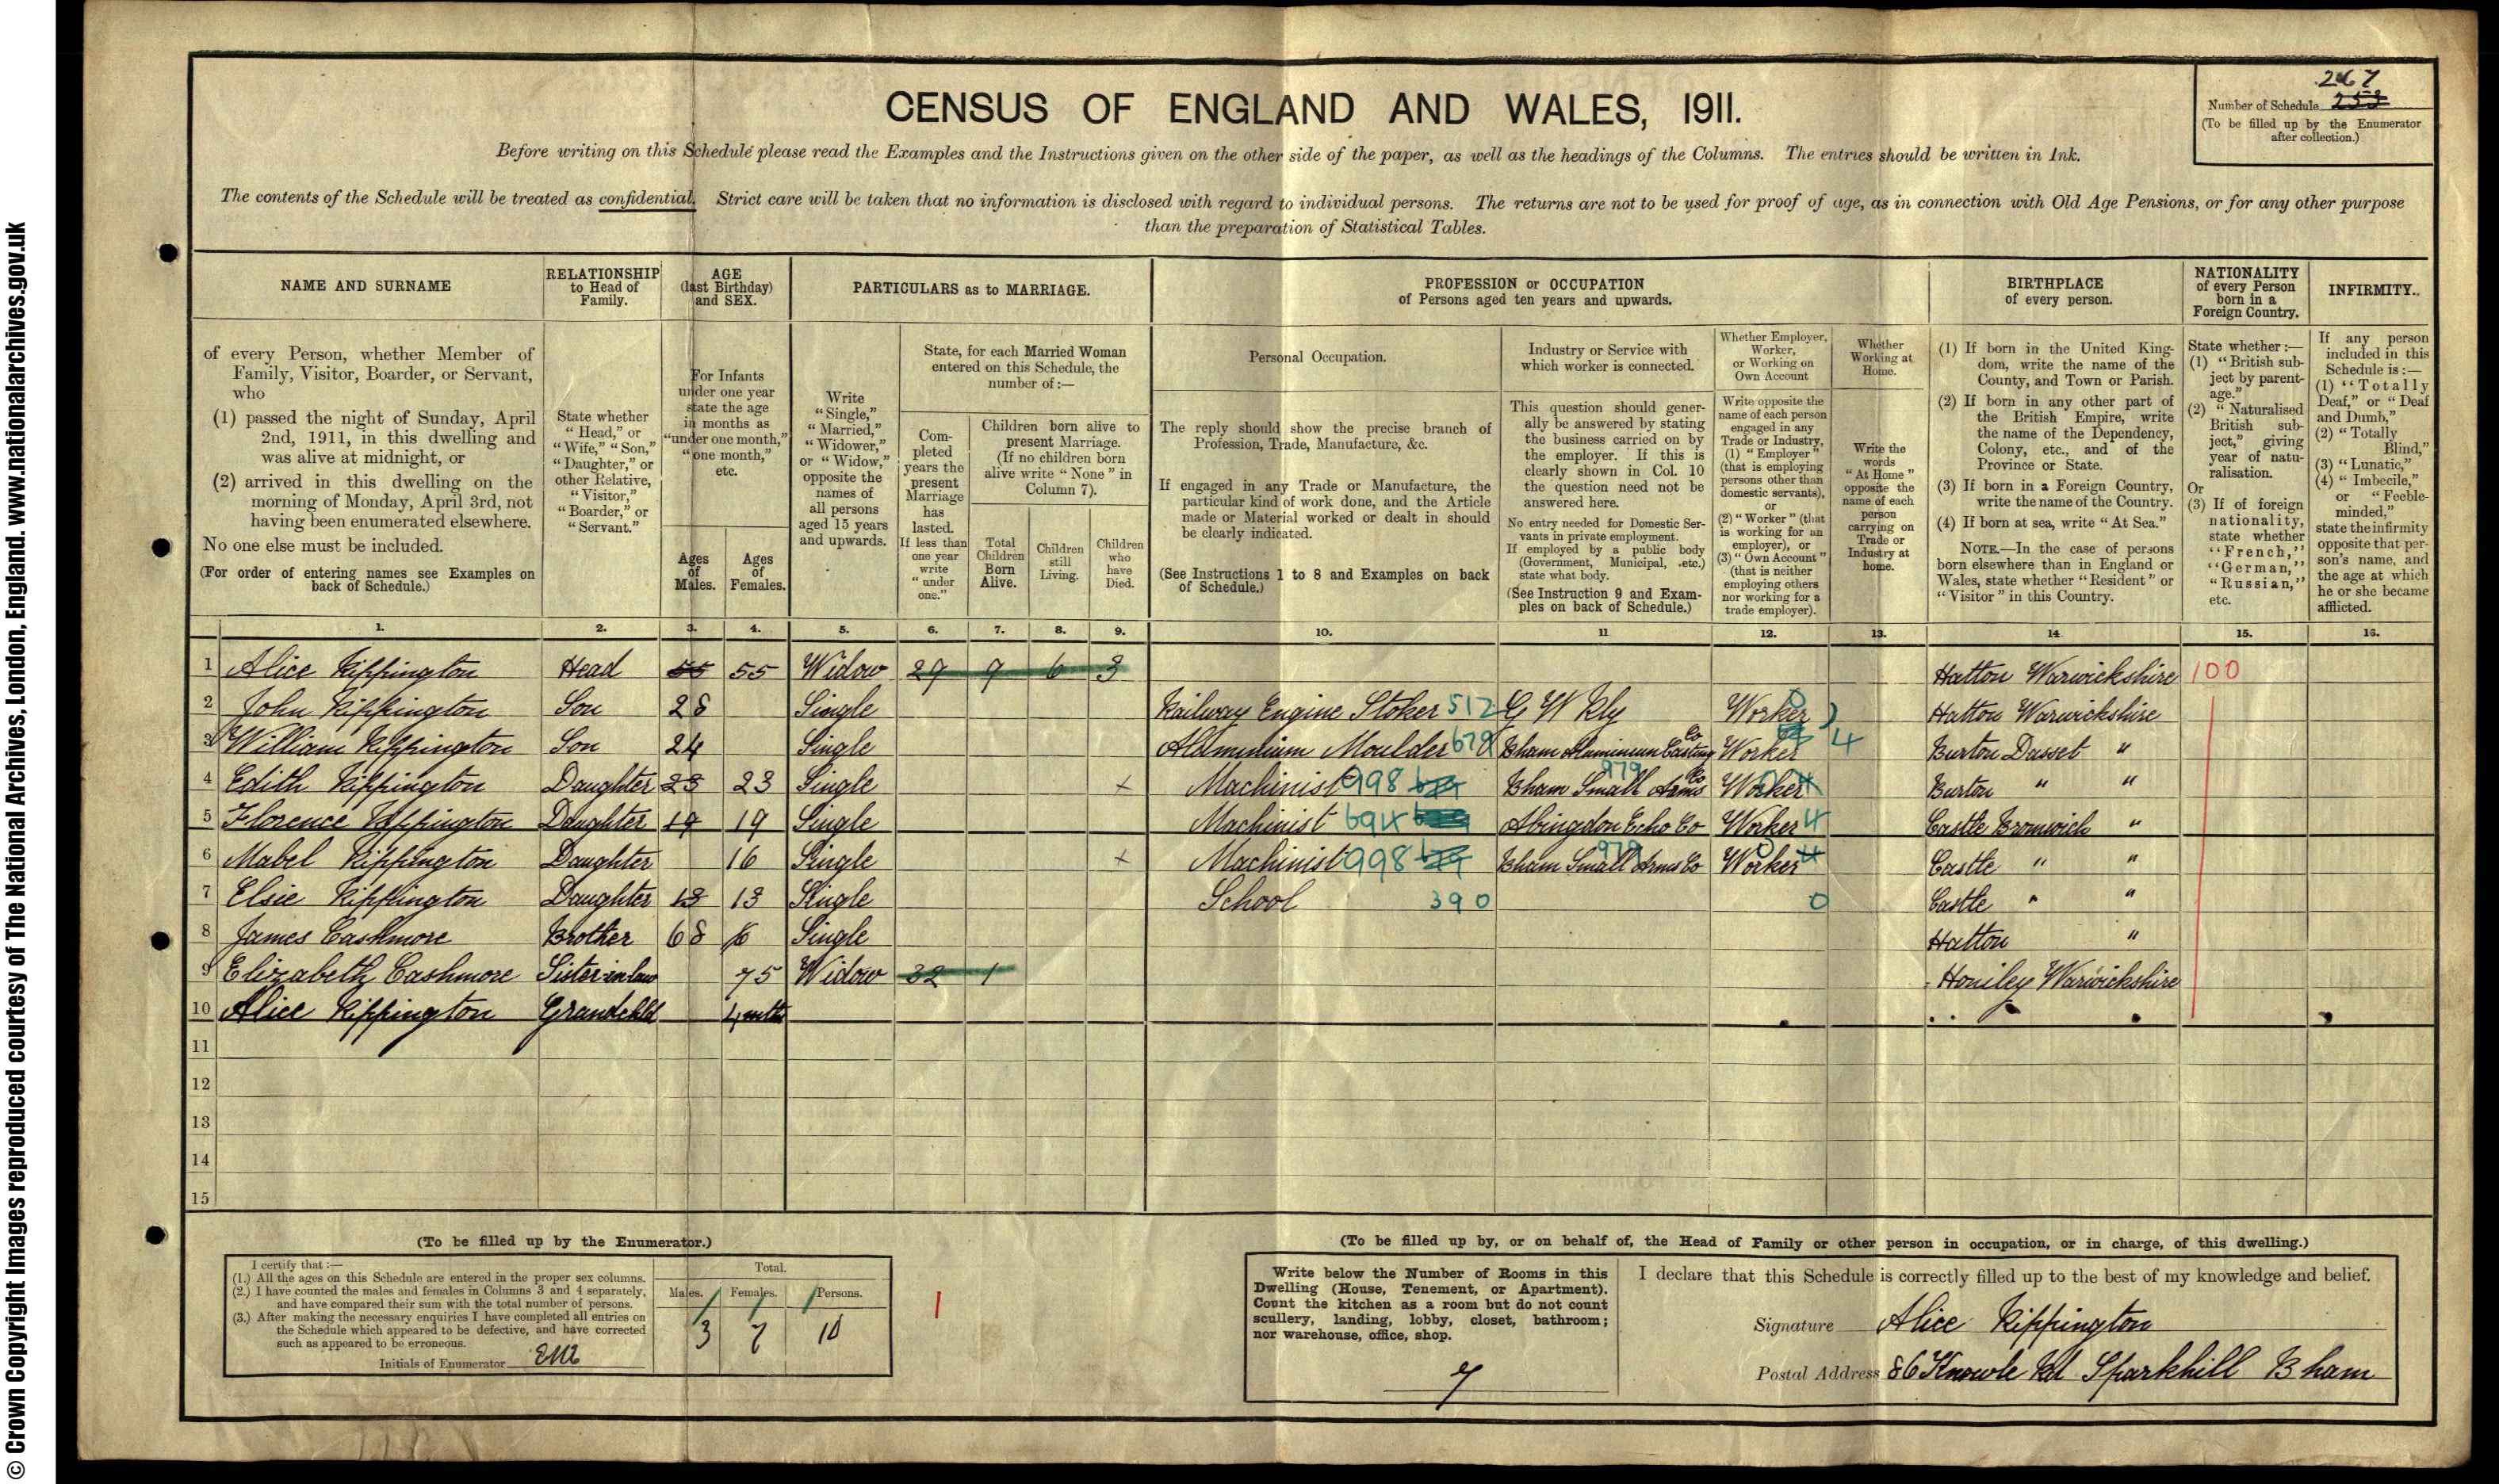 © Crown Copyright Images reproduced courtesy of The National Archives, London, England. www.nationalarchives.gov.uk
CENSUS OF ENGLAND AND WALES, 1911.
267
Number of Schedule 253
(To be filled up by the Enumerator
after collection.)
Before writing on this Schedule please read the Examples and the Instructions given on the other side of the paper, as well as the headings of the Columns. The entries should be written in Ink.
The contents of the Schedule will be treated as confidential. Strict care will be taken that no information is disclosed with regard to individual persons. The returns are not to be used for proof of age, as in connection with Old Age Pensions, or for any other purpose
than the preparation of Statistical Tables.
NAME AND SURNAME
of every Person, whether Member of
Family, Visitor, Boarder, or Servant,
who
(1) passed the night of Sunday, April
2nd, 1911, in this dwelling and
was alive at midnight, or
(2) arrived in this dwelling on the
morning of Monday, April 3rd, not
having been enumerated elsewhere.
No one else must be included.
(For order of entering names see Examples on
back of Schedule.)
RELATIONSHIP
to Head of
Family.
State whether
"Head," or
"Wife," "Son,"
"Daughter," or
other Relative,
"Visitor,"
"Boarder," or
"Servant."
AGE
(last Birthday)
and SEX.
For Infants
under one year
state the age
in months as
"under one month,"
"one month,"
etc.
Ages
of
Males.
Ages
of
Females.
PARTICULARS as to MARRIAGE.
Write
"Single,"
"Married,"
"Widower,"
or "Widow,"
opposite the
names of
all persons
aged 15 years
and upwards.
State, for each Married Woman
entered on this Schedule, the
number of:—
Com-
pleted
years the
present
Marriage
has
lasted.
If less than
one year
write
"under
one."
Children born alive to
present Marriage.
(If no children born
alive write "None" in
Column 7).
Total
Children
Born
Alive.
Children
still
Living.
Children
who
have
Died.
PROFESSION or OCCUPATION
of Persons aged ten years and upwards.
Personal Occupation.
The reply should show the precise branch of
Profession, Trade, Manufacture, &c.
If engaged in any Trade or Manufacture, the
particular kind of work done, and the Article
made or Material worked or dealt in should
be clearly indicated.
(See Instructions 1 to 8 and Examples on back
of Schedule.)
Industry or Service with
which worker is connected.
This question should gener-
ally be answered by stating
the business carried on by
the employer. If this is
clearly shown in Col. 10
the question need not be
answered here.
No entry needed for Domestic Ser-
vants in private employment.
If employed by a public body
(Government, Municipal, etc.)
state what body.
(See Instruction 9 and Exam-
ples on back of Schedule.)
Whether Employer,
Worker,
or Working on
Own Account
Write opposite the
name of each person
engaged in any
Trade or Industry,
(1) "Employer"
(that is employing
persons other than
domestic servants),
or
(2) "Worker" (that
is working for an
employer), or
(3) "Own Account"
(that is neither
employing others
nor working for a
trade employer).
Whether
Working at
Home.
Write the
words
"At Home"
opposite the
name of each
person
carrying on
Trade or
Industry at
home.
BIRTHPLACE
of every person.
(1) If born in the United King-
dom, write the name of the
County, and Town or Parish.
(2) If born in any other part of
the British Empire, write
the name of the Dependency,
Colony, etc., and of the
Province or State.
(3) If born in a Foreign Country,
write the name of the Country.
(4) If born at sea, write "At Sea."
NOTE.—In the case of persons
born elsewhere than in England or
Wales, state whether "Resident" or
"Visitor" in this Country.
NATIONALITY
of every Person
born in a
Foreign Country.
State whether:—
(1) "British sub-
ject by parent-
age."
(2) "Naturalised
British sub-
ject," giving
year of natu-
ralisation.
Or
(3) If of foreign
nationality,
state whether
"French,"
"German,"
"Russian,"
etc.
INFIRMITY.
If any person
included in this
Schedule is:—
(1) "Totally
Deaf," or "Deaf
and Dumb,"
(2) "Totally
Blind,"
(3) "Lunatic,"
(4) "Imbecile,"
or "Feeble-
minded,"
state the infirmity
opposite that per-
son's name, and
the age at which
he or she became
afflicted.
1. 2. 3. 4. 5. 6. 7. 8. 9. 10. 11 12. 13. 14 15. 16.
1 Alice Kippington Head 55 55 Widow 29 9 6 3 Hatton Warwickshire 100
2 John Kippington Son 28 Single Railway Engine Stoker 512 G W Rly Worker Hatton Warwickshire
3 William Kippington Son 24 Single Aluminium Moulder 679 Bham Aluminum Casting Co Worker 4 Burton Dasset "
4 Edith Kippington Daughter 23 23 Single × Machinist 998 Bham Small Arms Co 979 Worker Burton " "
5 Florence Kippington Daughter 19 19 Single Machinist 694 Abingdon Echo Co Worker 4 Castle Bromwich "
6 Mabel Kippington Daughter 16 Single × Machinist 998 Bham Small Arms Co 979 Worker Castle " "
7 Elsie Kippington Daughter 13 13 Single School 390 0 Castle " "
8 James Cashmore Brother 68 Single Hatton "
9 Elizabeth Cashmore Sister-in-law 75 Widow 32 1 Honiley Warwickshire
10 Alice Kippington Grandchld 4 mths
11
12
13
14
15
(To be filled up by the Enumerator.)
I certify that:—
(1.) All the ages on this Schedule are entered in the proper sex columns.
(2.) I have counted the males and females in Columns 3 and 4 separately,
and have compared their sum with the total number of persons.
(3.) After making the necessary enquiries I have completed all entries on
the Schedule which appeared to be defective, and have corrected
such as appeared to be erroneous.
Initials of Enumerator
Total.
Males. Females. Persons.
3 7 10
(To be filled up by, or on behalf of, the Head of Family or other person in occupation, or in charge, of this dwelling.)
Write below the Number of Rooms in this
Dwelling (House, Tenement, or Apartment).
Count the kitchen as a room but do not count
scullery, landing, lobby, closet, bathroom;
nor warehouse, office, shop.
7
I declare that this Schedule is correctly filled up to the best of my knowledge and belief.
Signature Alice Kippington
Postal Address 86 Knowle Rd Sparkhill B ham